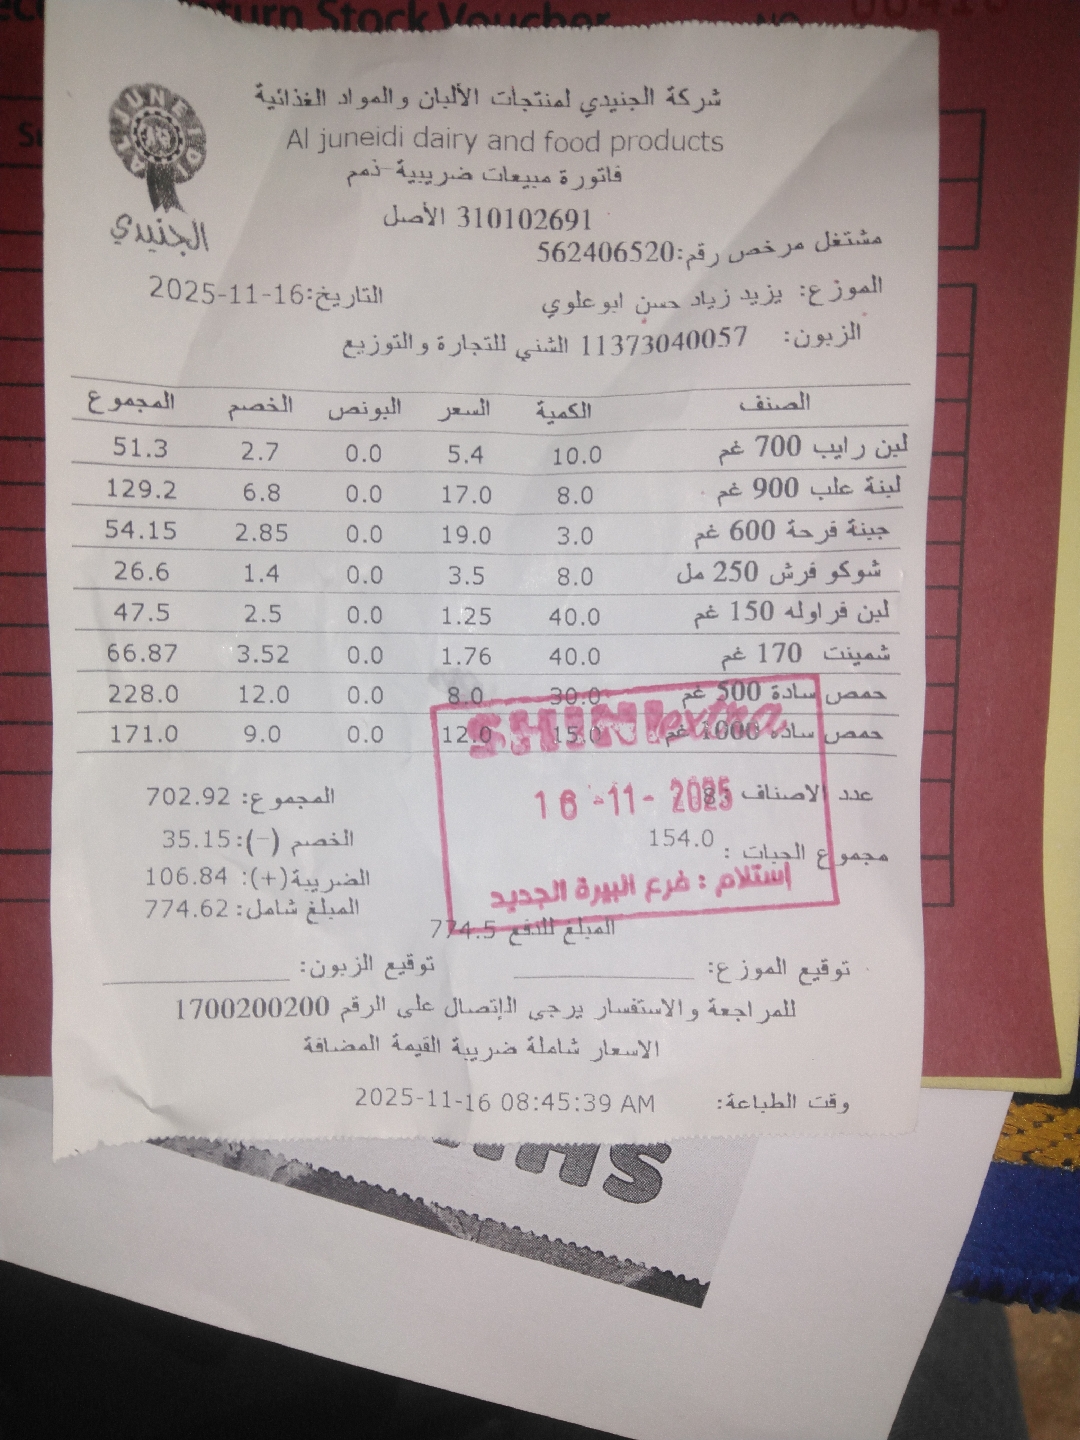 Return Stock Voucher
NO
شركة الجنيدي لمنتجات الألبان والمواد الغذائية
Al juneidi dairy and food products
AL JUNEIDI
الجنيدي
فاتورة مبيعات ضريبية-ذمم
310102691 الأصل
مشتغل مرخص رقم:562406520
الموزع: يزيد زياد حسن ابو علوي التاريخ:2025-11-16
الزبون: 11373040057 الشني للتجارة والتوزيع
الصنف الكمية السعر البونص الخصم المجموع
لبن رايب 700 غم 10.0 5.4 0.0 2.7 51.3
لبنة علب 900 غم 8.0 17.0 0.0 6.8 129.2
جبنة فرحة 600 غم 3.0 19.0 0.0 2.85 54.15
شوكو فرش 250 مل 8.0 3.5 0.0 1.4 26.6
لبن فراوله 150 غم 40.0 1.25 0.0 2.5 47.5
شمينت 170 غم 40.0 1.76 0.0 3.52 66.87
حمص سادة 500 غم 30.0 8.0 0.0 12.0 228.0
حمص سادة 1000 غم 15.0 12.0 0.0 9.0 171.0
SHINI extra
16 -11- 2025
استلام : فرع البيرة الجديد
عدد الاصناف : 8 المجموع: 702.92
مجموع الحبات : 154.0 الخصم (-): 35.15
الضريبة(+): 106.84
المبلغ شامل: 774.62
المبلغ للدفع 774.5
توقيع الموزع: توقيع الزبون:
للمراجعة والاستفسار يرجى الإتصال على الرقم 1700200200
الاسعار شاملة ضريبة القيمة المضافة
وقت الطباعة: 2025-11-16 08:45:39 AM